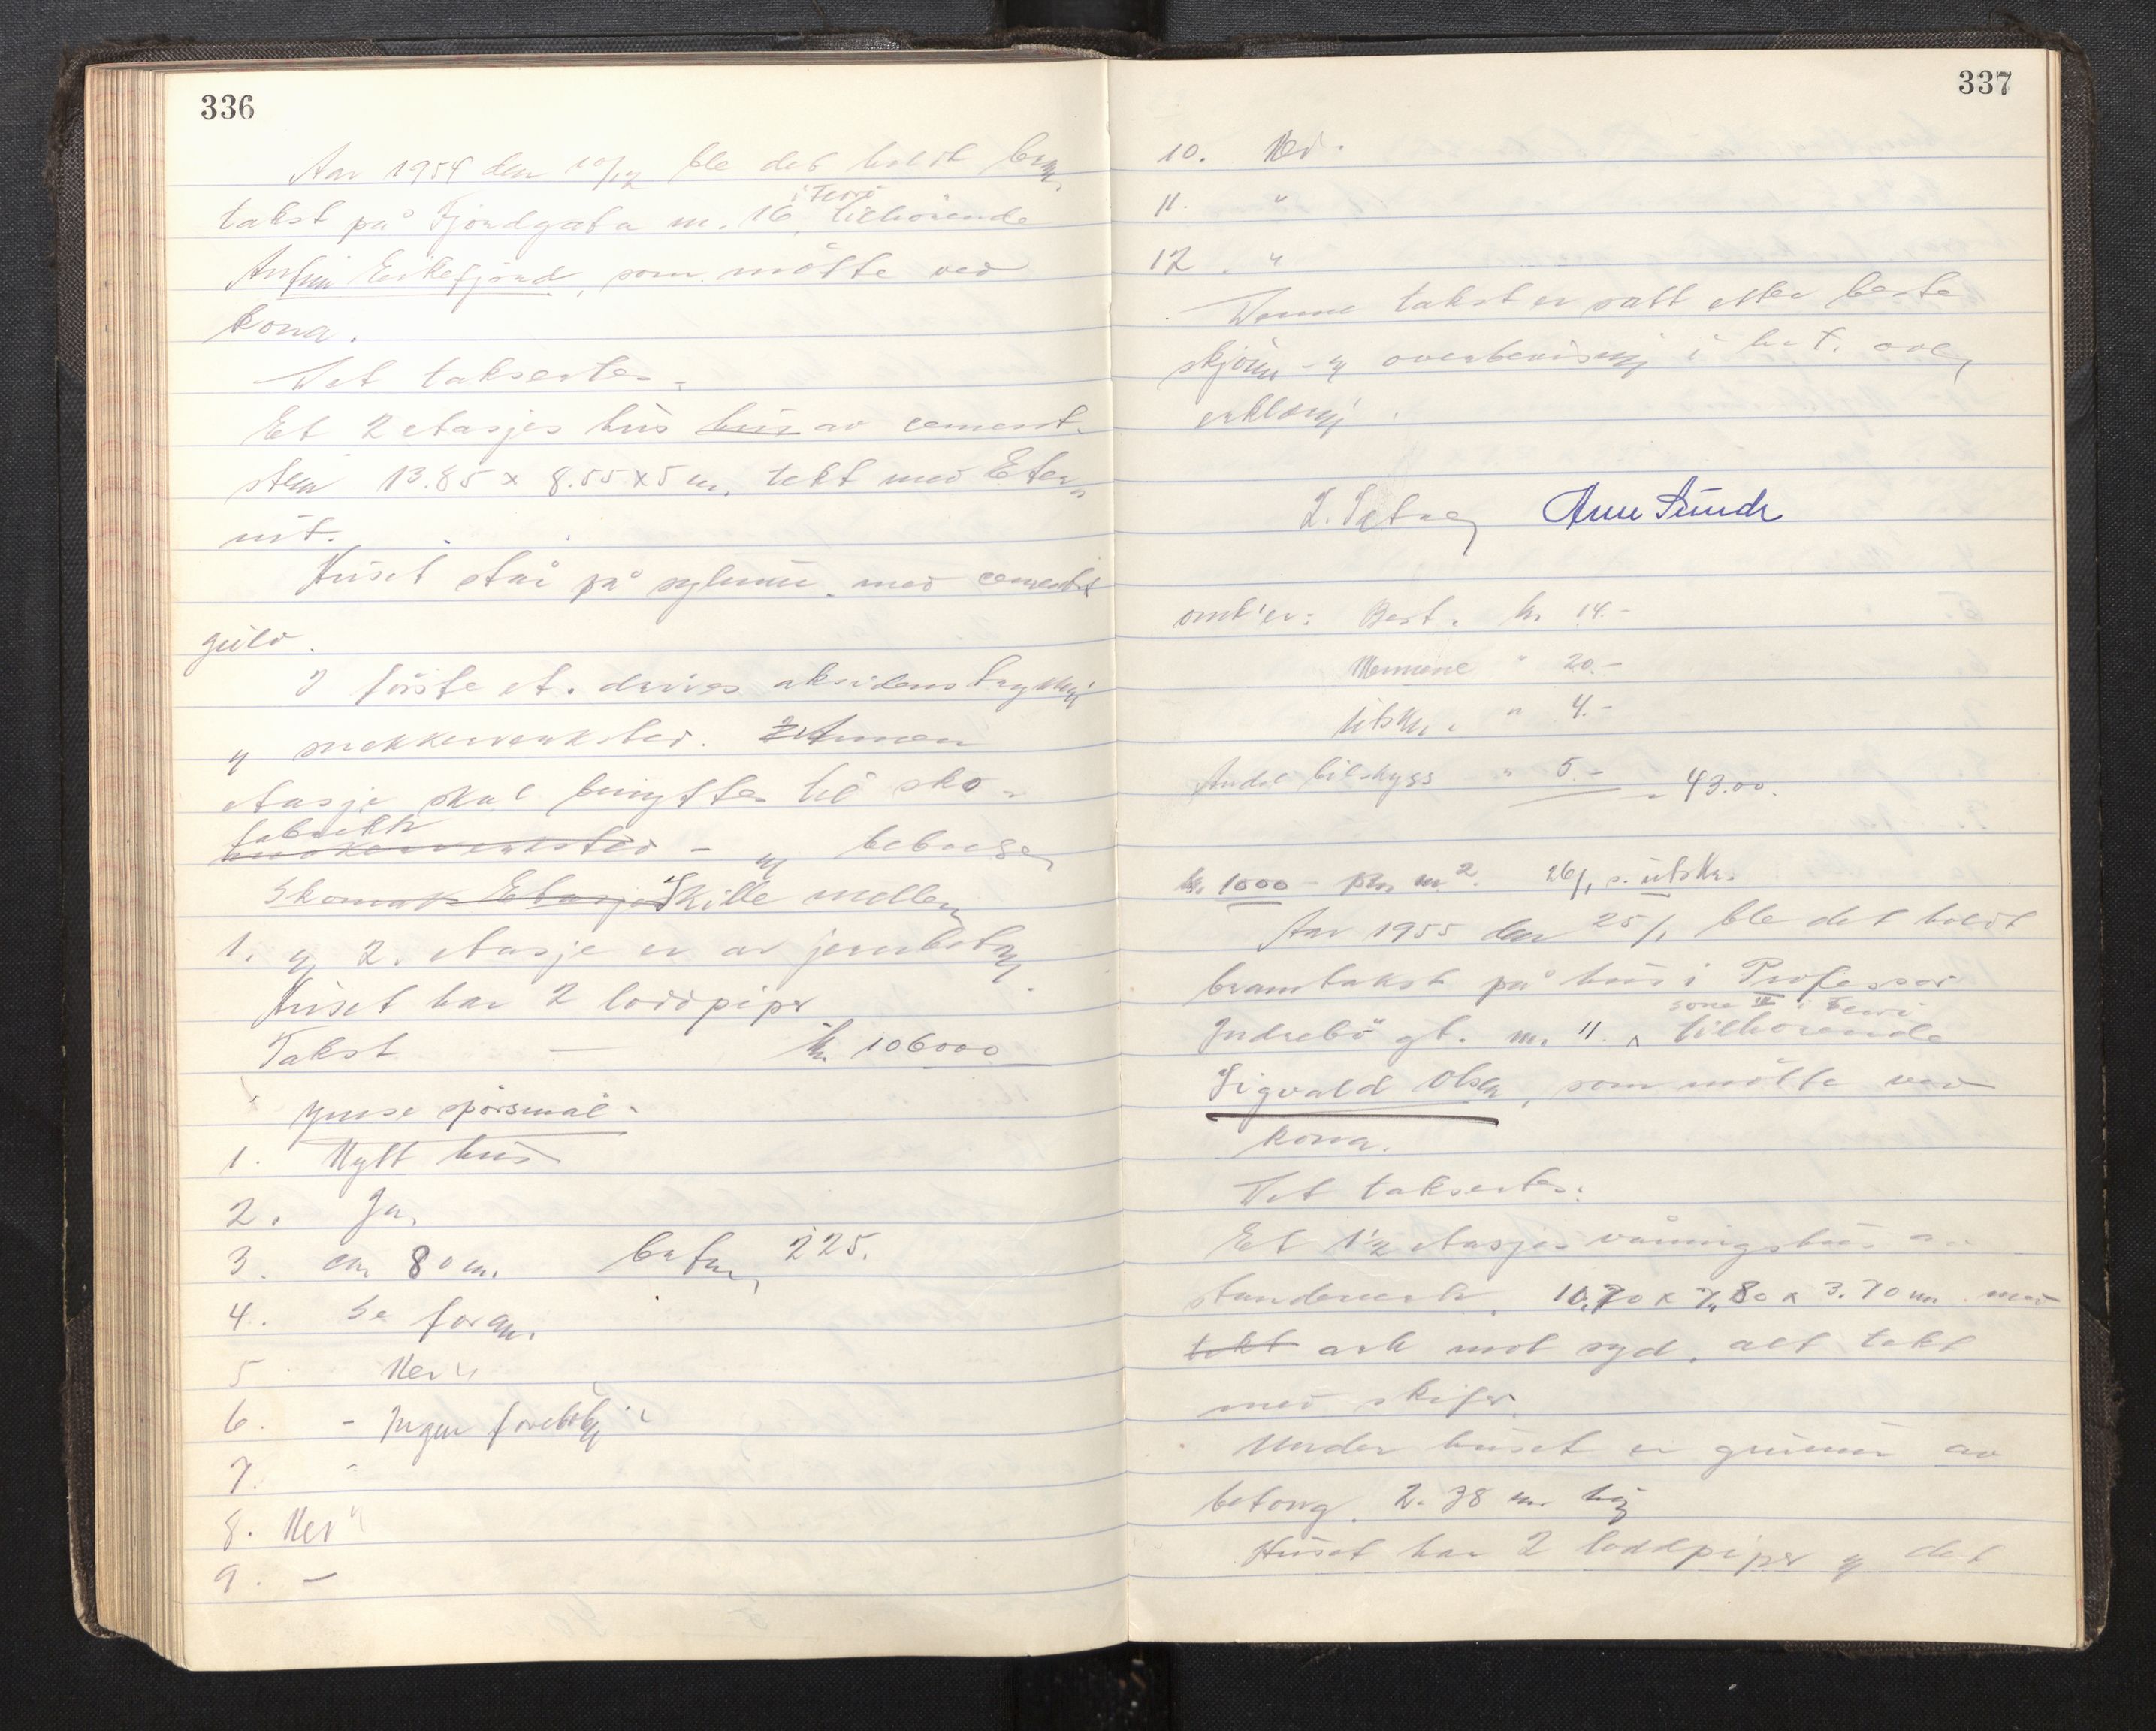 336
Aar 1954 den 10/12 ble det holdt bran
takst på Fjordgata nr. 16, i Florø tilhørende
Arfin Eikefjord, som møtte ved
kona.
Det takseres.
Et 2 etasjes hus hus av cement.
stein 13.85 x 8.55 x 5 m. tekt med Eter
nit.
Huset står på sylmur. med cement
gulv.
I første et. drives aksidenstrykkeri
og snekkerverksted. 2 Annen
etasje skal benyttes til sko-
fabrikk og beboelse
Skomak Etasje Skille mellem
1. og 2. etasje er av jernbetong
Huset har 2 loddpiper
Takst — kr. 106000
Ymse spørsmål.
1. Nytt hus
2. Ja.
3. ca. 80 m. 225.
4. Se foran.
5 Nei
6. - Ingen
7. "
8. Nei
9. —
337
10. Nei.
11. "
12. "
Denne takst er satt etter beste
skjønn og overbevisning i h. t. avlag
erklæring.
Arne Sunde
omk'er: Best. kr 14.-
Mennene " 20.-
Utskr. " 4.-
Andel bilskyss " 5.- = 43.00.
kr. 1000 - pr. m². 26/1 s. utskr.
Aar 1955 den 25/1 ble det holdt
branntakst på hus i Professor
Indrebø gt. nr. 11. sone III i Florø tilhørende
Sigvald Olsen, som møtte ved
kona.
Det takseres:
Et 1½ etasjes våningshus av
standerverk. 10.70 x 7.80 x 3.70 m. med
tekt ark mot syd. alt tekt
med skifer.
Under huset er grunmur av
betong. 2.38 m. høg
Huset har 2 loddpiper og det